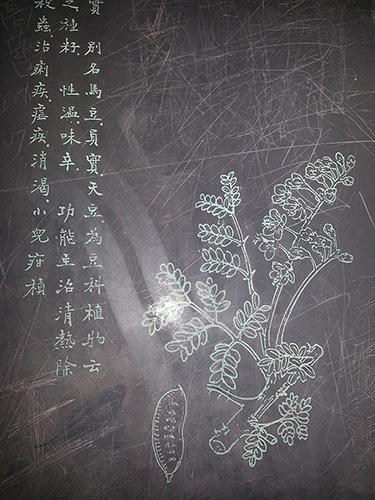 實 別名馬豆、員實、天豆、為豆科植物云
之種籽 性溫、味辛 功能主治清熱除
殺蟲治痢疾、瘧疾、消渴、小兒疳積